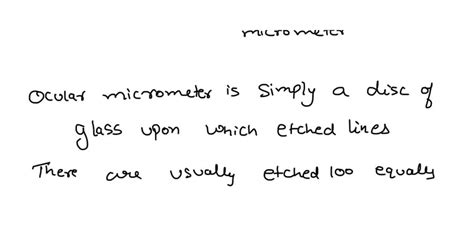 micrometer
Ocular micrometer is simply a disc of
glass upon which etched lines
There are usually etched 100 equally